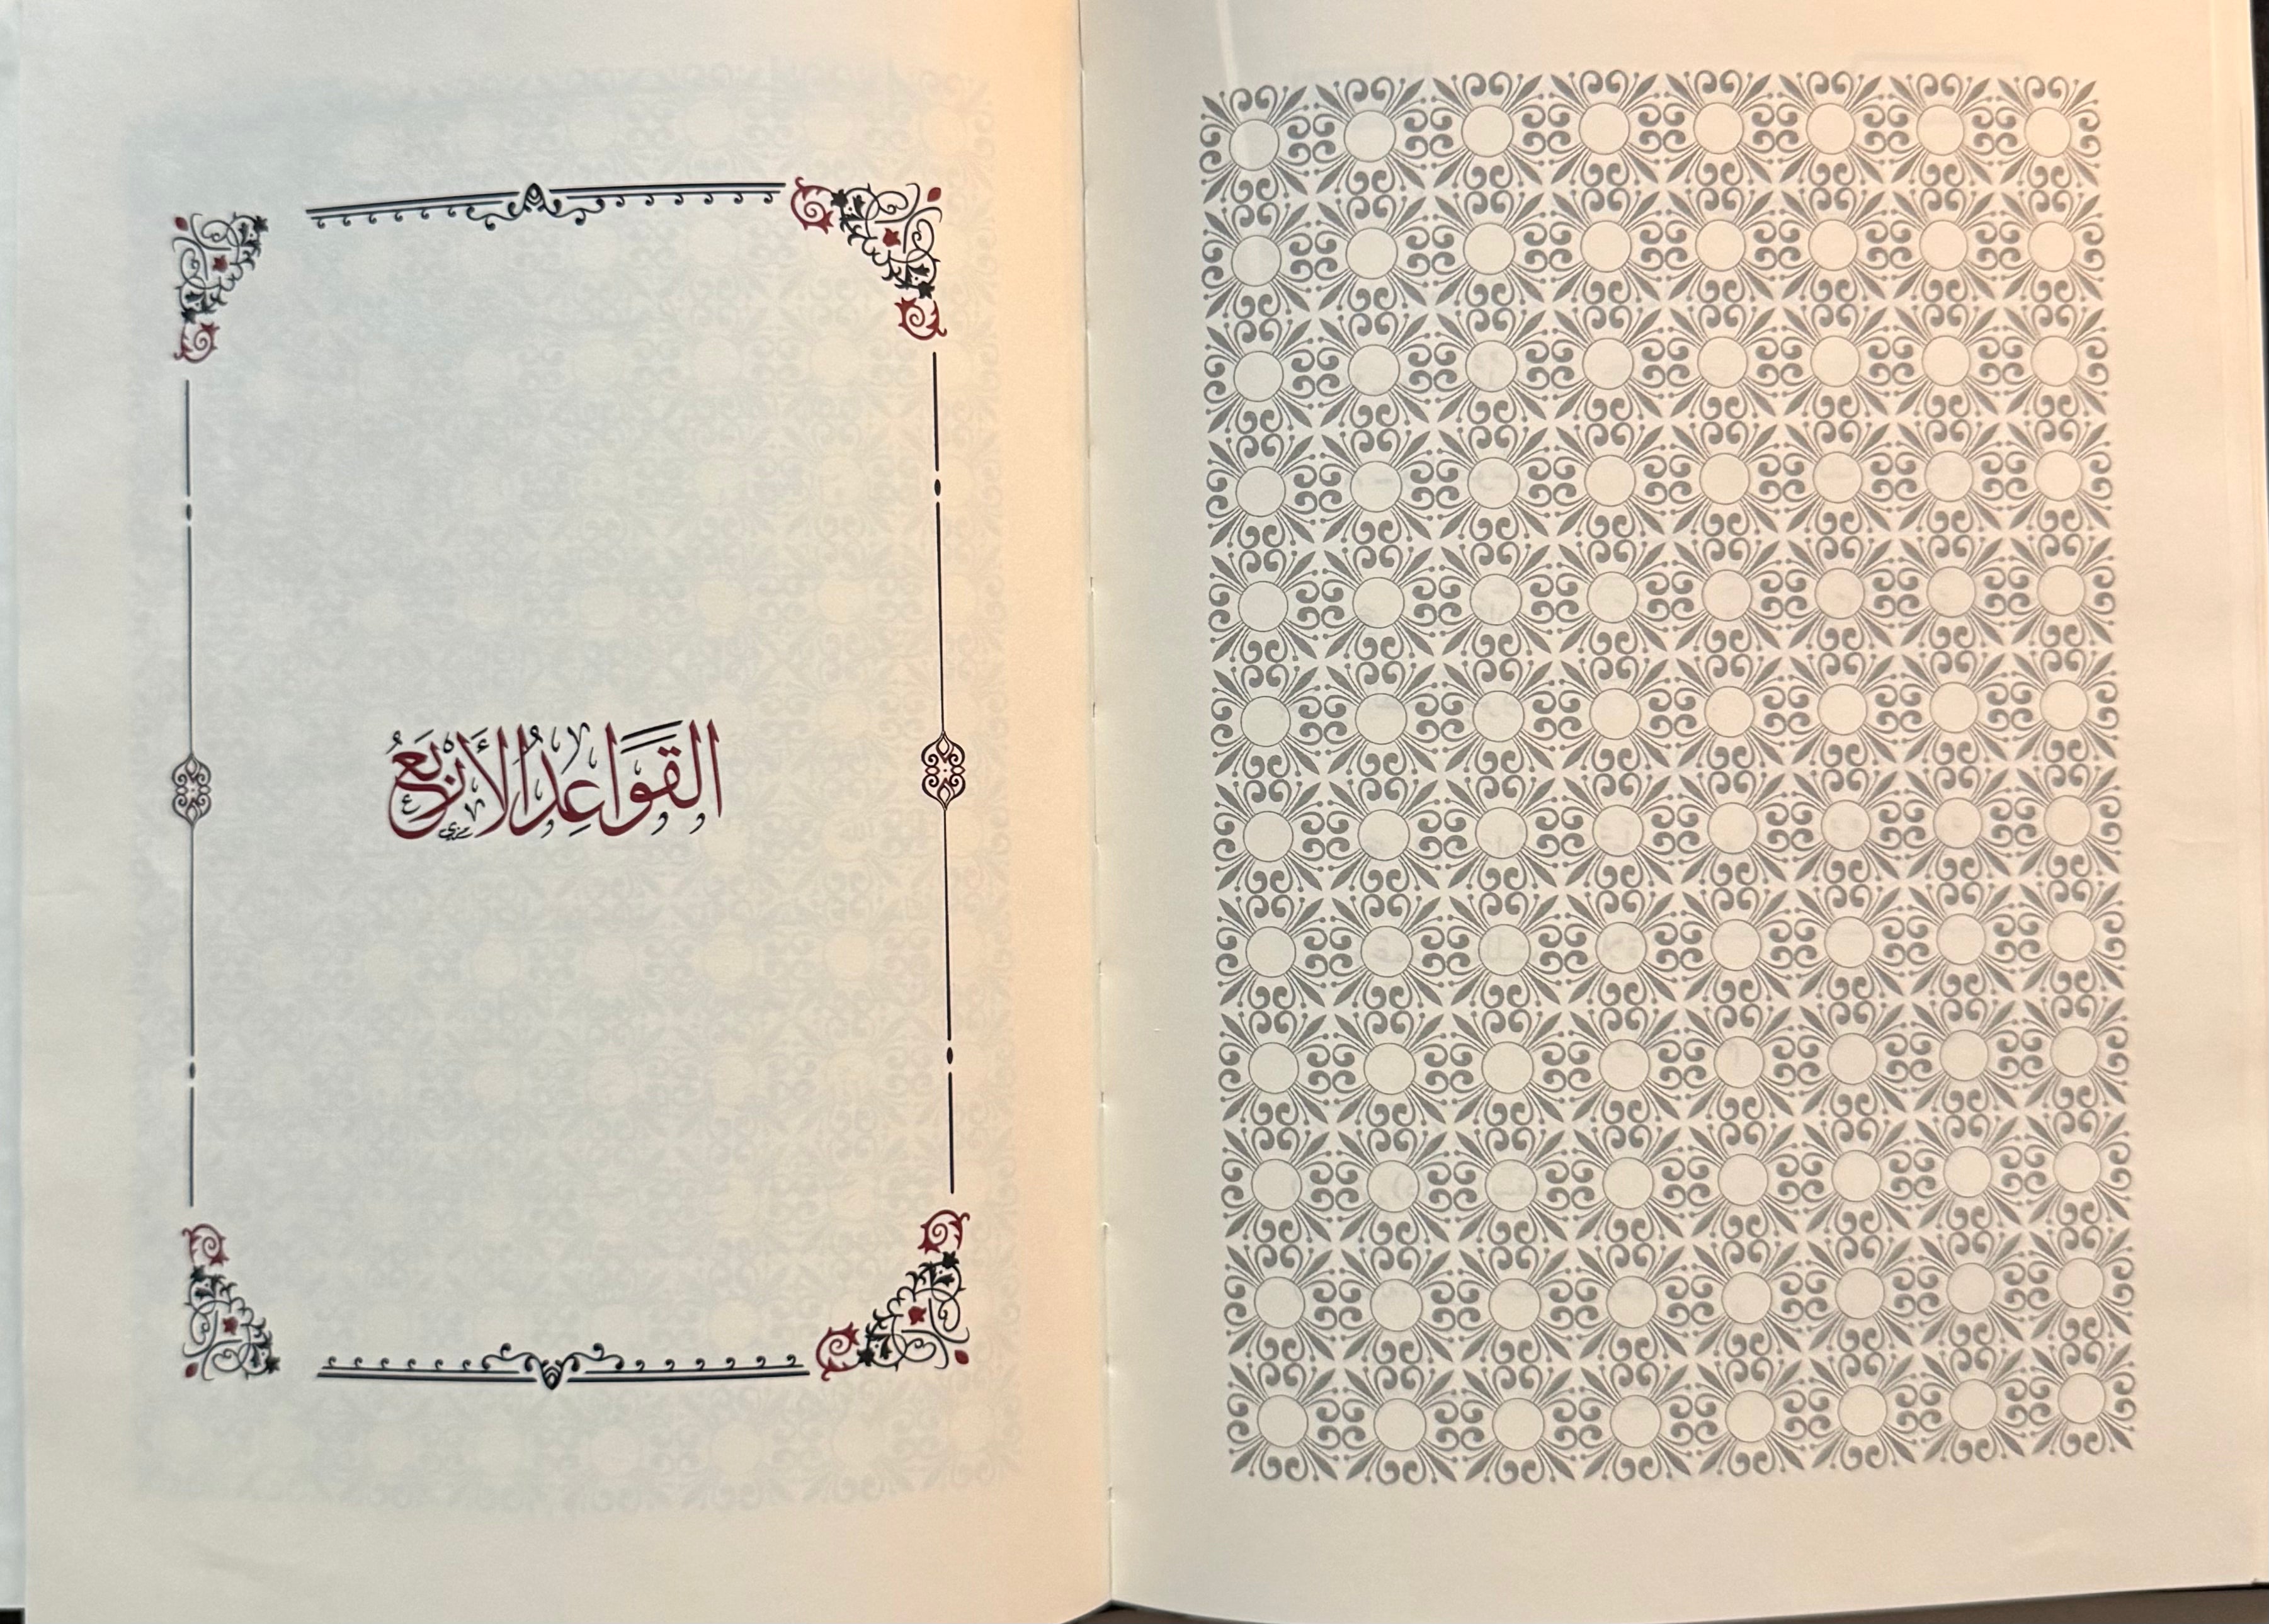 القَوَاعِدُ الأَرْبَعُ